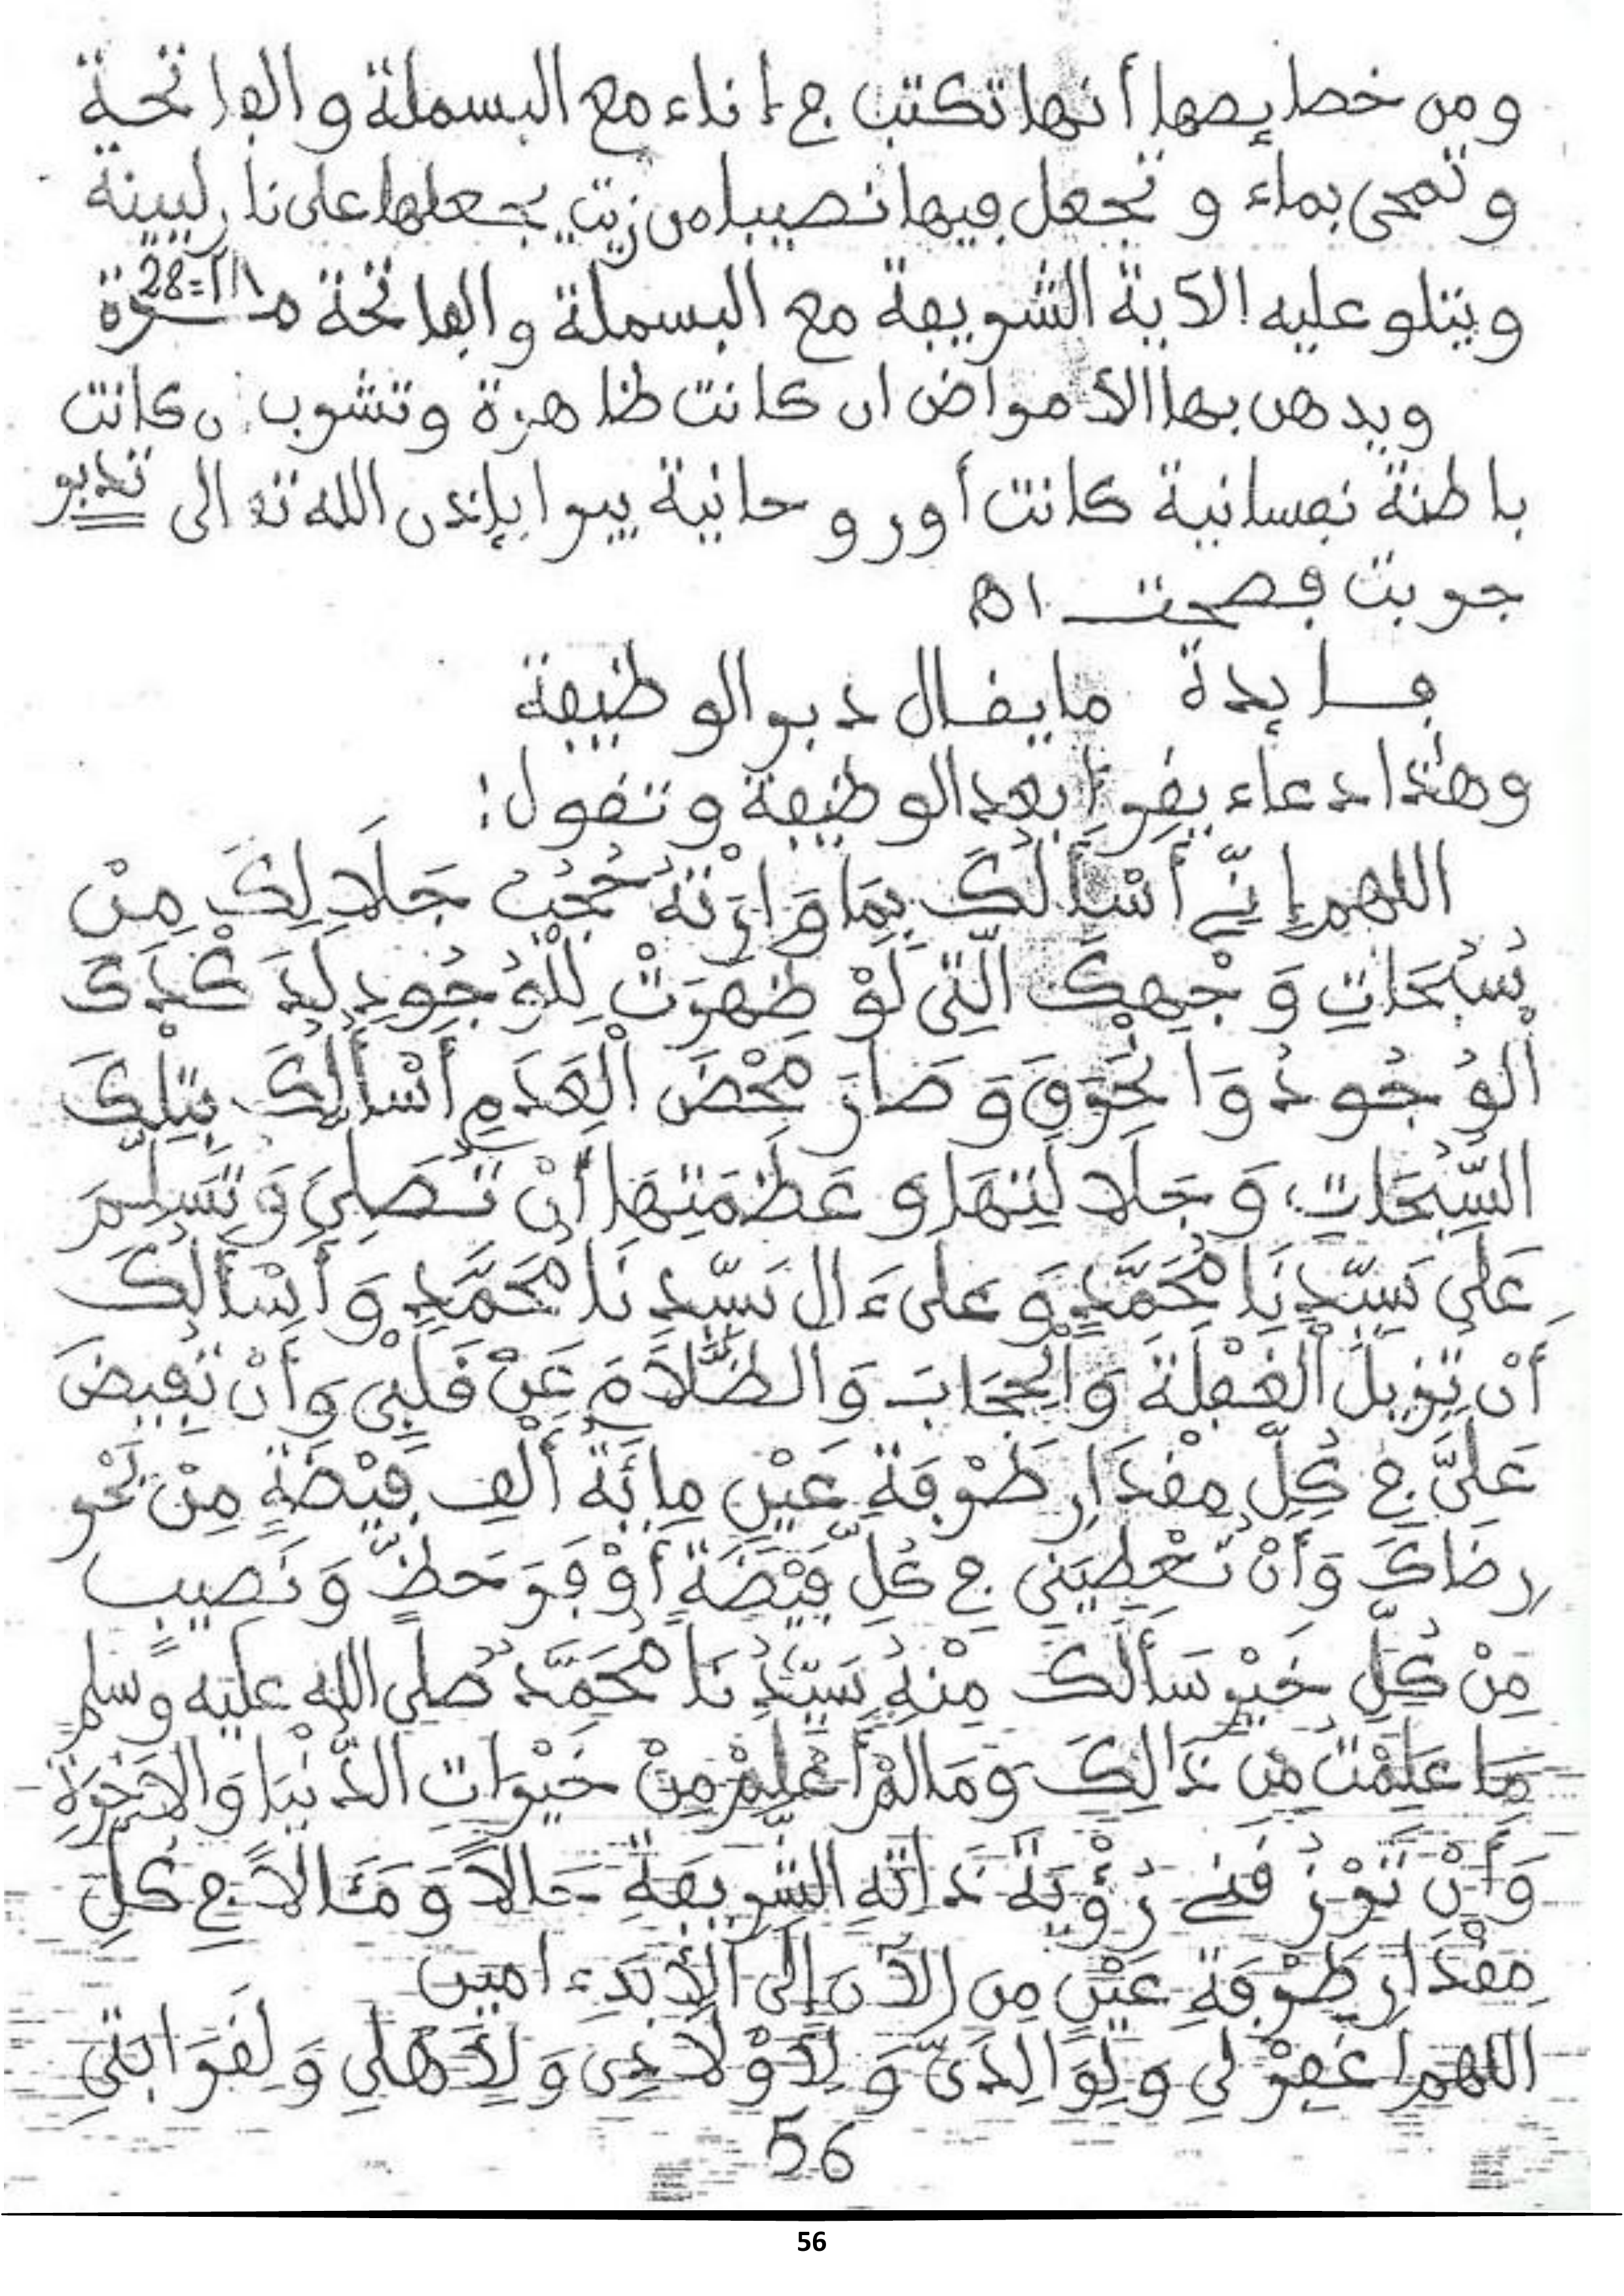 ومن خصايصها أنها تكتب في إناء مع البسملة والفاتحة
وتمحى بماء وتجعل فيها نصيبا من زيت يجعلها على نار ليينة
ويتلو عليه الآية الشريفة مع البسملة والفاتحة مـــرة
28=٢٨
ويدهن بها الأمراض ان كانت ظاهرة وتشرب كانت
باطنة نفسانية كانت أو روحانية يبرا بإذن الله تعالى تدبر
جربت فصحت اه
فــايدة ما يقال دبر الوظيفة
وهٰذا دعاء يقرا بعد الوظيفة وتقول:
اللهم إِنِّي أَسْأَلُكَ بِمَا وَارَتْهُ حُجُبُ جَلَالِكَ مِنْ
سُبُحَاتِ وَجْهِكَ الَّتِي لَوْ ظَهَرَتْ لِلْوُجُودِ لَدَكْدَكَ
الْوُجُودُ وَانْحَرَقَ وَصَارَ مَحْضَ الْعَدَمِ أَسْأَلُكَ بِتِلْكَ
السُّبُحَاتِ وَجَلَالَتِهَا وَعَظَمَتِهَا أَنْ تُصَلِّيَ وَتُسَلِّمَ
عَلَى سَيِّدِنَا مُحَمَّدٍ وَعَلَى ءَالِ سَيِّدِنَا مُحَمَّدٍ وَأَسْأَلُكَ
أَنْ تُزِيلَ الْغَفْلَةَ وَالْحِجَابَ وَالظَّلَامَ عَنْ قَلْبِي وَأَنْ تُفِيضَ
عَلَيَّ في كُلِّ مِقْدَارِ طَرْفَةِ عَيْنٍ مِائَةَ أَلْفِ فَيْضَةٍ مِنْ بَحْرِ
رِضَاكَ وَأَنْ تُعْطِيَنِي في كُلِّ فَيْضَةٍ أَوْفَرَ حَظٍّ وَنَصِيبٍ
مِنْ كُلِّ خَيْرٍ سَأَلَكَ مِنْهُ سَيِّدُنَا مُحَمَّدٌ صلى الله عليه وسلم
مَا عَلِمْتُ مِن ذَالِكَ وَمَا لَمْ أَعْلَمْ مِنْ خَيْرَاتِ الدُّنْيَا وَالْآخِرَةِ
وَأَنْ تَرْزُقَنِي رُؤْيَةَ ذَاتِهِ الشَّرِيفَةِ حَالًا وَمَئَالًا في كُلِّ
مِقْدَارِ طَرْفَةِ عَيْنٍ مِنَ الْآنَ إِلَى الْأَبَدِ ءامين
اللهم اغْفِرْ لِي وَلِوَالِدَيَّ وَلِأَوْلَادِي وَلِأَهْلِي وَلِقَرَابَتِي
56
56